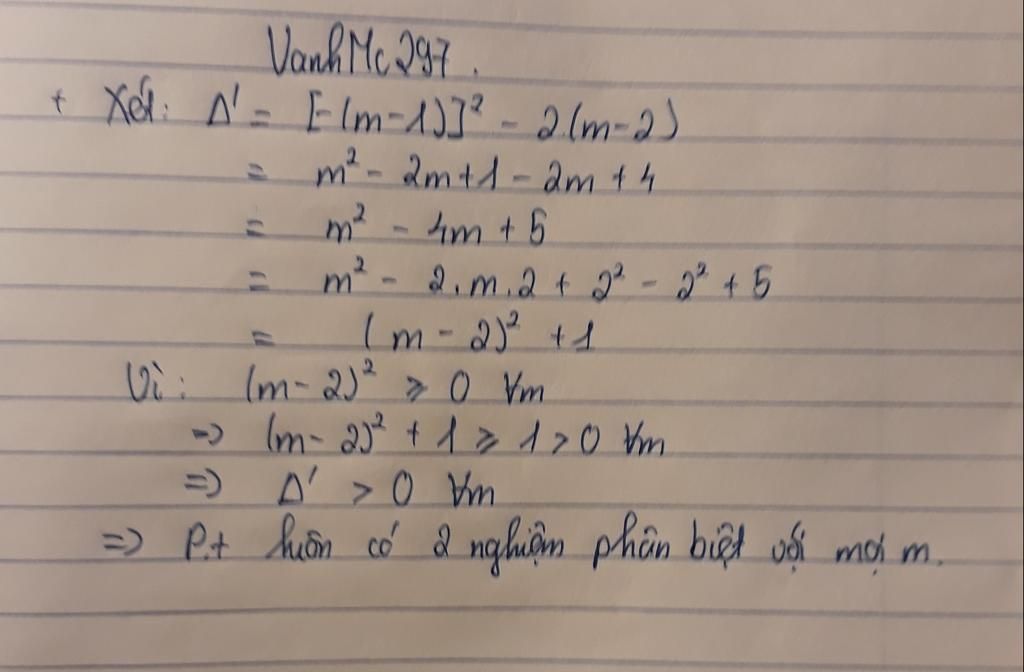 VanhMc297.
+ Xét: Δ' = [-(m-1)]² - 2(m-2)
= m² - 2m+1 - 2m + 4
= m² - 4m + 5
= m² - 2.m.2 + 2² - 2² + 5
= (m - 2)² + 1
Vì: (m- 2)² ≥ 0 ∀m
=> (m- 2)² + 1 ≥ 1 > 0 ∀m
=> Δ' > 0 ∀m
=> P.t luôn có 2 nghiệm phân biệt với mọi m.